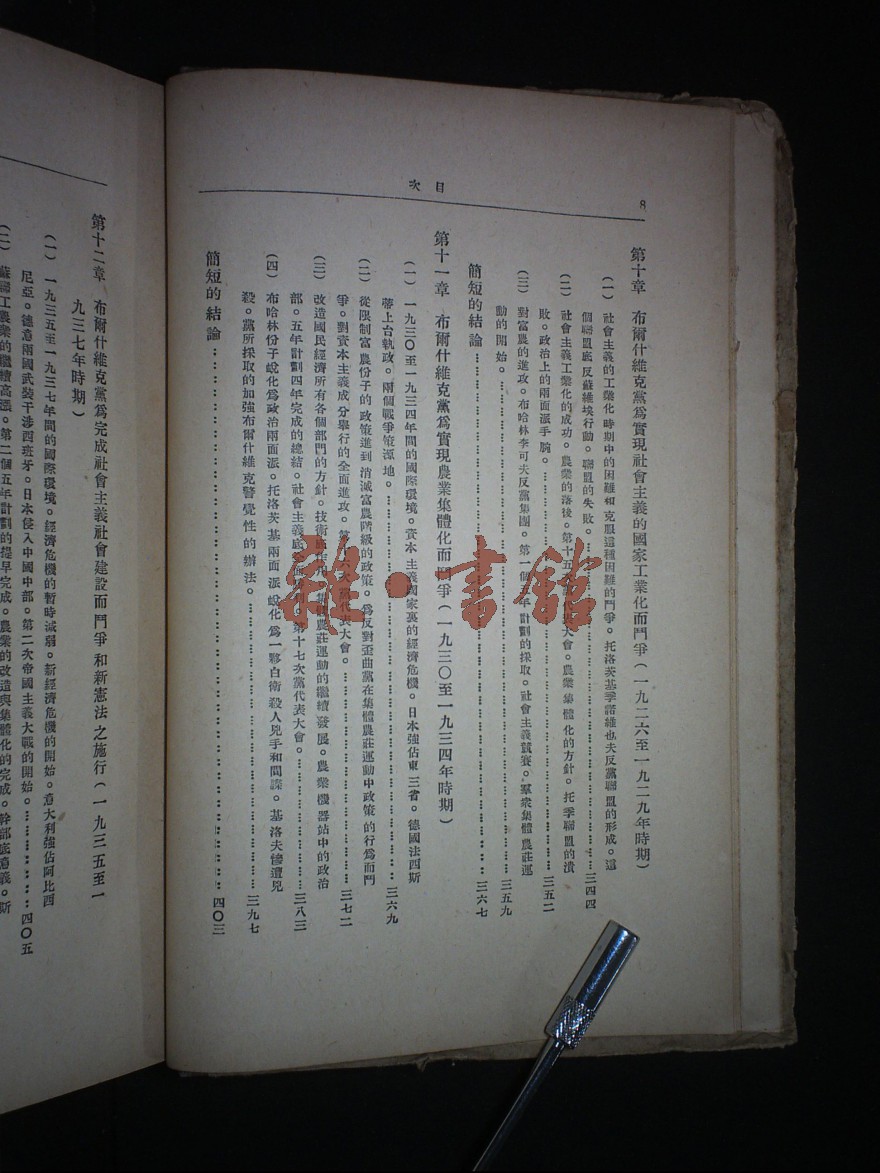 目次
8
第十章 布爾什維克黨爲實現社會主義的國家工業化而鬥爭(一九二六至一九二九年時期)
(一) 社會主義的工業化時期中的困難和克服這種困難的鬥爭。托洛茨基季諾維也夫反黨聯盟的形成。這
個聯盟底反蘇維埃行動。聯盟的失敗。……三四四
(二) 社會主義工業化的成功。農業的落後。第十五次黨代表大會。農業集體化的方針。托季聯盟的潰
敗。政治上的兩面派手腕。……三五二
(三) 對富農的進攻。布哈林李可夫反黨集團。第一個五年計劃的採取。社會主義競賽。羣衆集體農莊運
動的開始。……三五九
簡短的結論……三六七
第十一章 布爾什維克黨爲實現農業集體化而鬥爭(一九三〇至一九三四年時期)
(一) 一九三〇至一九三四年間的國際環境。資本主義國家裏的經濟危機。日本強佔東三省。德國法西斯
蒂上台執政。兩個戰爭策源地。……三六九
(二) 從限制富農份子的政策進到消滅富農階級的政策。爲反對歪曲黨在集體農莊運動中政策的行爲而鬥
爭。對資本主義成分舉行的全面進攻。第十六次黨代表大會。……三七二
(三) 改造國民經濟所有各個部門的方針。技術底作用。集體農莊運動的繼續發展。農業機器站中的政治
部。五年計劃四年完成的總結。社會主義底全面勝利。第十七次黨代表大會。……三八三
(四) 布哈林份子蛻化爲政治兩面派。托洛茨基兩面派蛻化爲一夥白衛殺人兇手和間諜。基洛夫慘遭兇
殺。黨所採取的加強布爾什維克警覺性的辦法。……三九七
簡短的結論……四〇三
第十二章 布爾什維克黨爲完成社會主義社會建設而鬥爭和新憲法之施行(一九三五至一
九三七年時期)
(一) 一九三五至一九三七年間的國際環境。經濟危機的暫時減弱。新經濟危機的開始。意大利強佔阿比西
尼亞。德意兩國武裝干涉西班牙。日本侵入中國中部。第二次帝國主義大戰的開始。……四〇五
(二) 蘇聯工農業的繼續高漲。第二個五年計劃的提早完成。農業的改造與集體化的完成。幹部底意義。斯
雜·書館